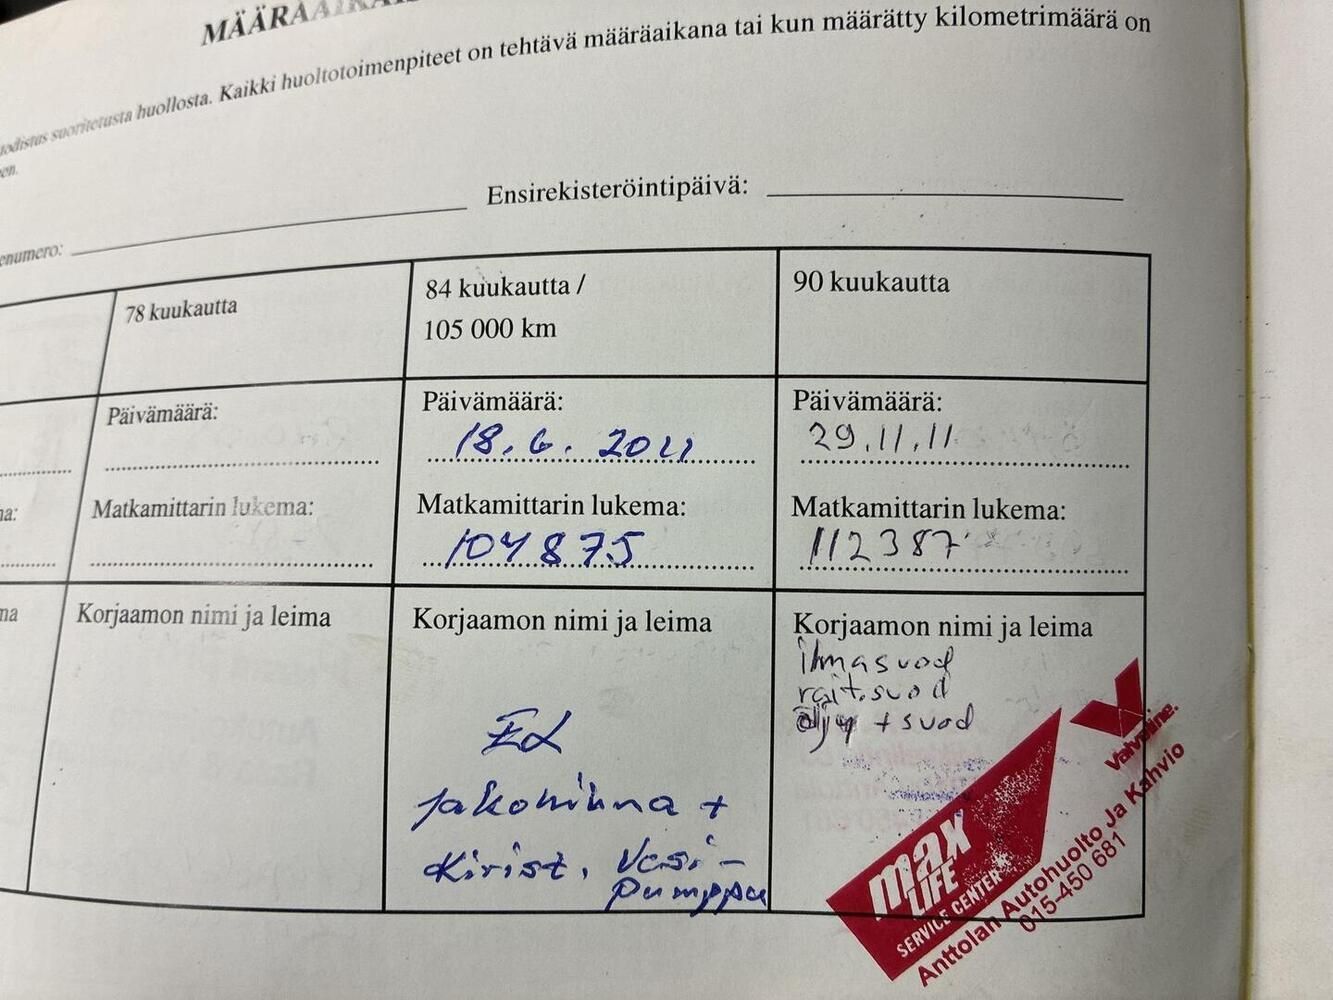 MÄÄRÄAIKAIS
todistus suoritetusta huollosta. Kaikki huoltotoimenpiteet on tehtävä määräaikana tai kun määrätty kilometrimäärä on
een.
enumero:
Ensirekisteröintipäivä:
78 kuukautta
Päivämäärä:
Matkamittarin lukema:
Korjaamon nimi ja leima
84 kuukautta /
105 000 km
Päivämäärä:
18.6.2011
Matkamittarin lukema:
104875
Korjaamon nimi ja leima
Jakohihna +
Kirist. Vesi-
pumppu
90 kuukautta
Päivämäärä:
29.11.11
Matkamittarin lukema:
112387
Korjaamon nimi ja leima
ilmasuod
rait.suod
öljy + suod
Valvoline.
max
LIFE
SERVICE CENTER
Anttolan Autohuolto Ja Kahvio
015-450 681